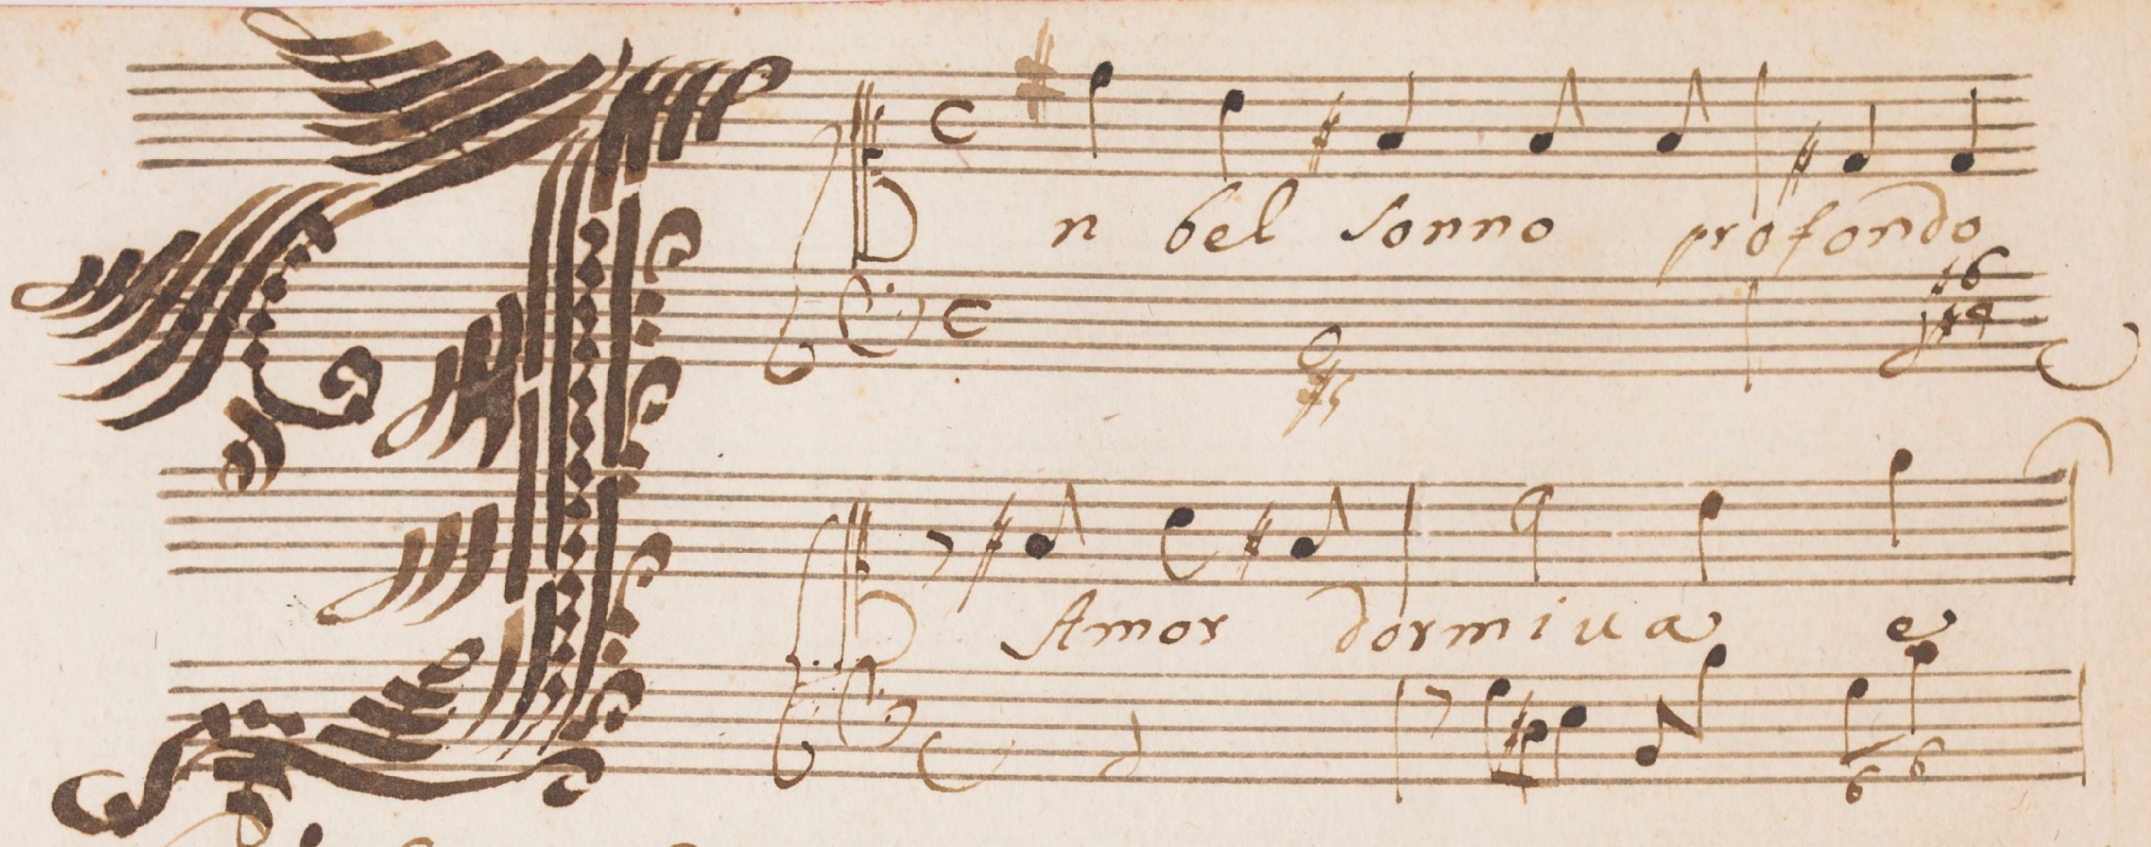 In bel sonno profondo
Amor dormiua e